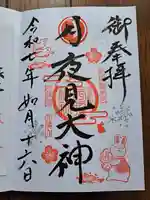 御奉拝
月夜見大神
令和七年如月十六日